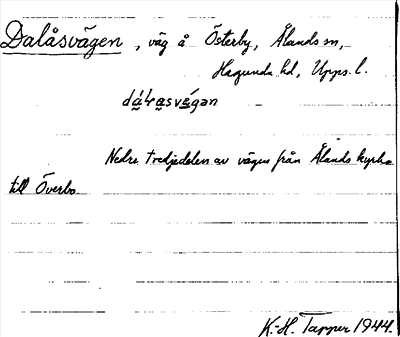 Dalåsvägen, väg å Österby, Ålands sn,
Hagunda hd, Upps. l.
dálasvägan
Nedre tredjedelen av vägen från Ålands kyrka
till Överbo
K.-H. Tapper 1944.